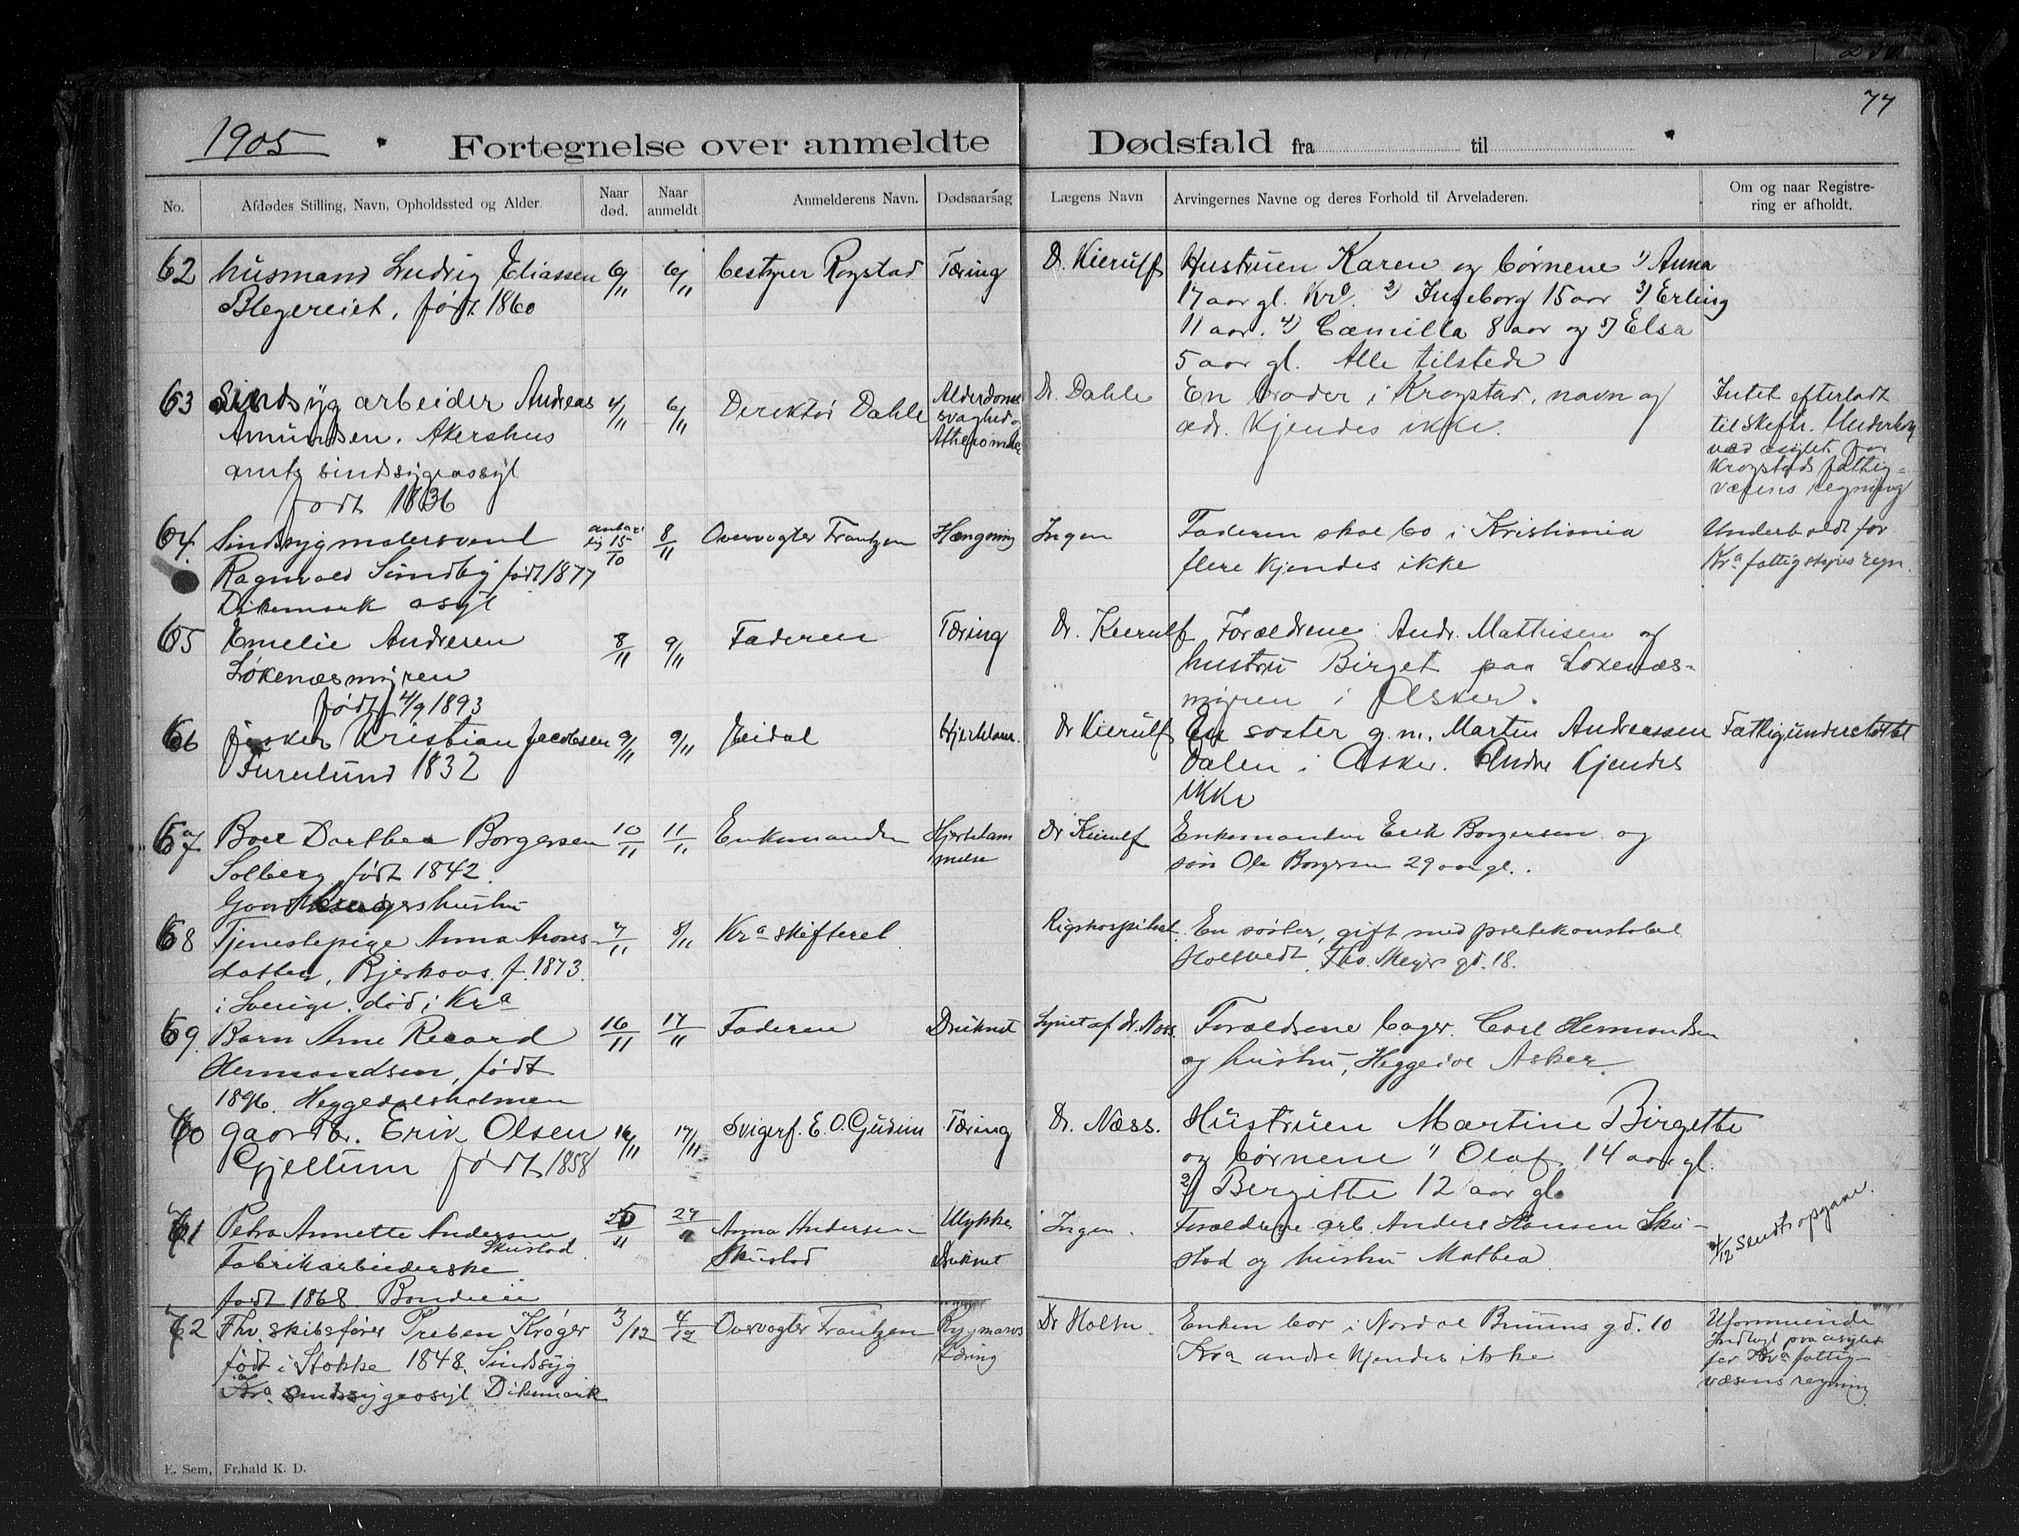 77
1905
Fortegnelse over anmeldte Dødsfald fra til
No.
Afdødes Stilling, Navn, Opholdssted og Alder.
Naar død.
Naar anmeldt
Anmelderens Navn.
Dødsaarsag
Lægens Navn
Arvingernes Navne og deres Forhold til Arveladeren.
Om og naar Registre-
ring er afholdt.
62 husmand Ludvig Eliassen 6/11 6/11 bestyrer Rogstad Tæring Dr. Kierulf Hustruen Karen og børnene 1) Anna
Blegereiet, født 1860 17 aar gl. Kra. 2) Ingeborg 15 aar 3) Erling
11 aar. 4) Camilla 8 aar og 5) Elsa
5 aar gl. Alle tilstede
63 Sindsyg arbeider Andreas 4/11 6/11 Direktør Dahle Alderdoms Dr. Dahle En broder i Krogstad, navn og Intet efterladt
Amundsen. Akershus svaghed adr. kjendes ikke. til skifte. Underh
amts sindsygeasyl ved asylet for
født 1836 Krogstads fattig-
væsens regning
64. Sindssyg malersvend 15/10 8/11 Overvogter Frantzen Hængning Ingen Faderen skal bo i Kristiania Underholdt for
Ragnvald Sundby født 1877 flere kjendes ikke Kra fattigstyres regn.
Dikemark asyl
65 Emelie Andresen 8/11 9/11 Faderen Tæring Dr. Kierulf Forældrene Andr. Mathisen og
Løkenæsmyren hustru Birget paa Løkenæs-
født 4/9 1893 myren i Asker.
66 fisker Kristian Jacobsen 9/11 9/11 Heidal Hjertelam. Dr Kierulf En søster g.m. Martin Andreassen Fattigunderstøttet
Furulund 1832 Dalen i Asker. Andre kjendes
ikke
67 Boel Dorthea Borgersen 10/11 11/11 Enkemanden Hjertelam Dr Kierulf Enkemanden Erik Borgersen og
Solberg, født 1842. melse søn Ole Borgersen 29 aar gl.
68 Tjenestepige Anna Arons- 7/11 8/11 Kra skifteret Rigshospitalet En søster, gift med politikonstabel
datter, Bjerkaas. f. 1873 Holtvedt. Tho. Meyers gd. 18.
i Sverige. død i Kra
69. Barn Arne Ricard 16/11 17/11 Faderen Druknet Synet af Dr. Næss. Forældrene bager. Carl Hermandsen
Hermandsen, født og hustru, Heggedal Asker.
1896. Heggedalsholmen
70 gaardbr. Erik Olsen 16/11 17/11 Svigerf. E. O. Gudim Tæring Dr. Næss. Hustruen Martine Birgitte
Gjellum født 1858 og børnene 1) Olaf 14 aar gl.
2) Bergitte 12 aar gl.
71 Petra Annette Andersen Anna Andersen Ulykke Ingen. Forældrene arb. Anders Hansen Sku-
Skustad
Fabrikarbeiderske Skustad Druknet stad og hustru Mathea
4/12 Sendt opgave.
født 1868. Bondivei
72 Fhv. skibsfører Preben Krøger 3/12 4/12 Overvogter Frantzen Rygmarvs Dr Holm. Enken bor i Nordal Bruuns gd. 10 Uformuende
født i Stokke 1848. Sindsyg tæring Kra andre kjendes ikke Indlagt paa asylet
Kra sindsygeasyl Dikemark for Kra fattig-
væsens regning
E. Sem, Fr.hald K. D.